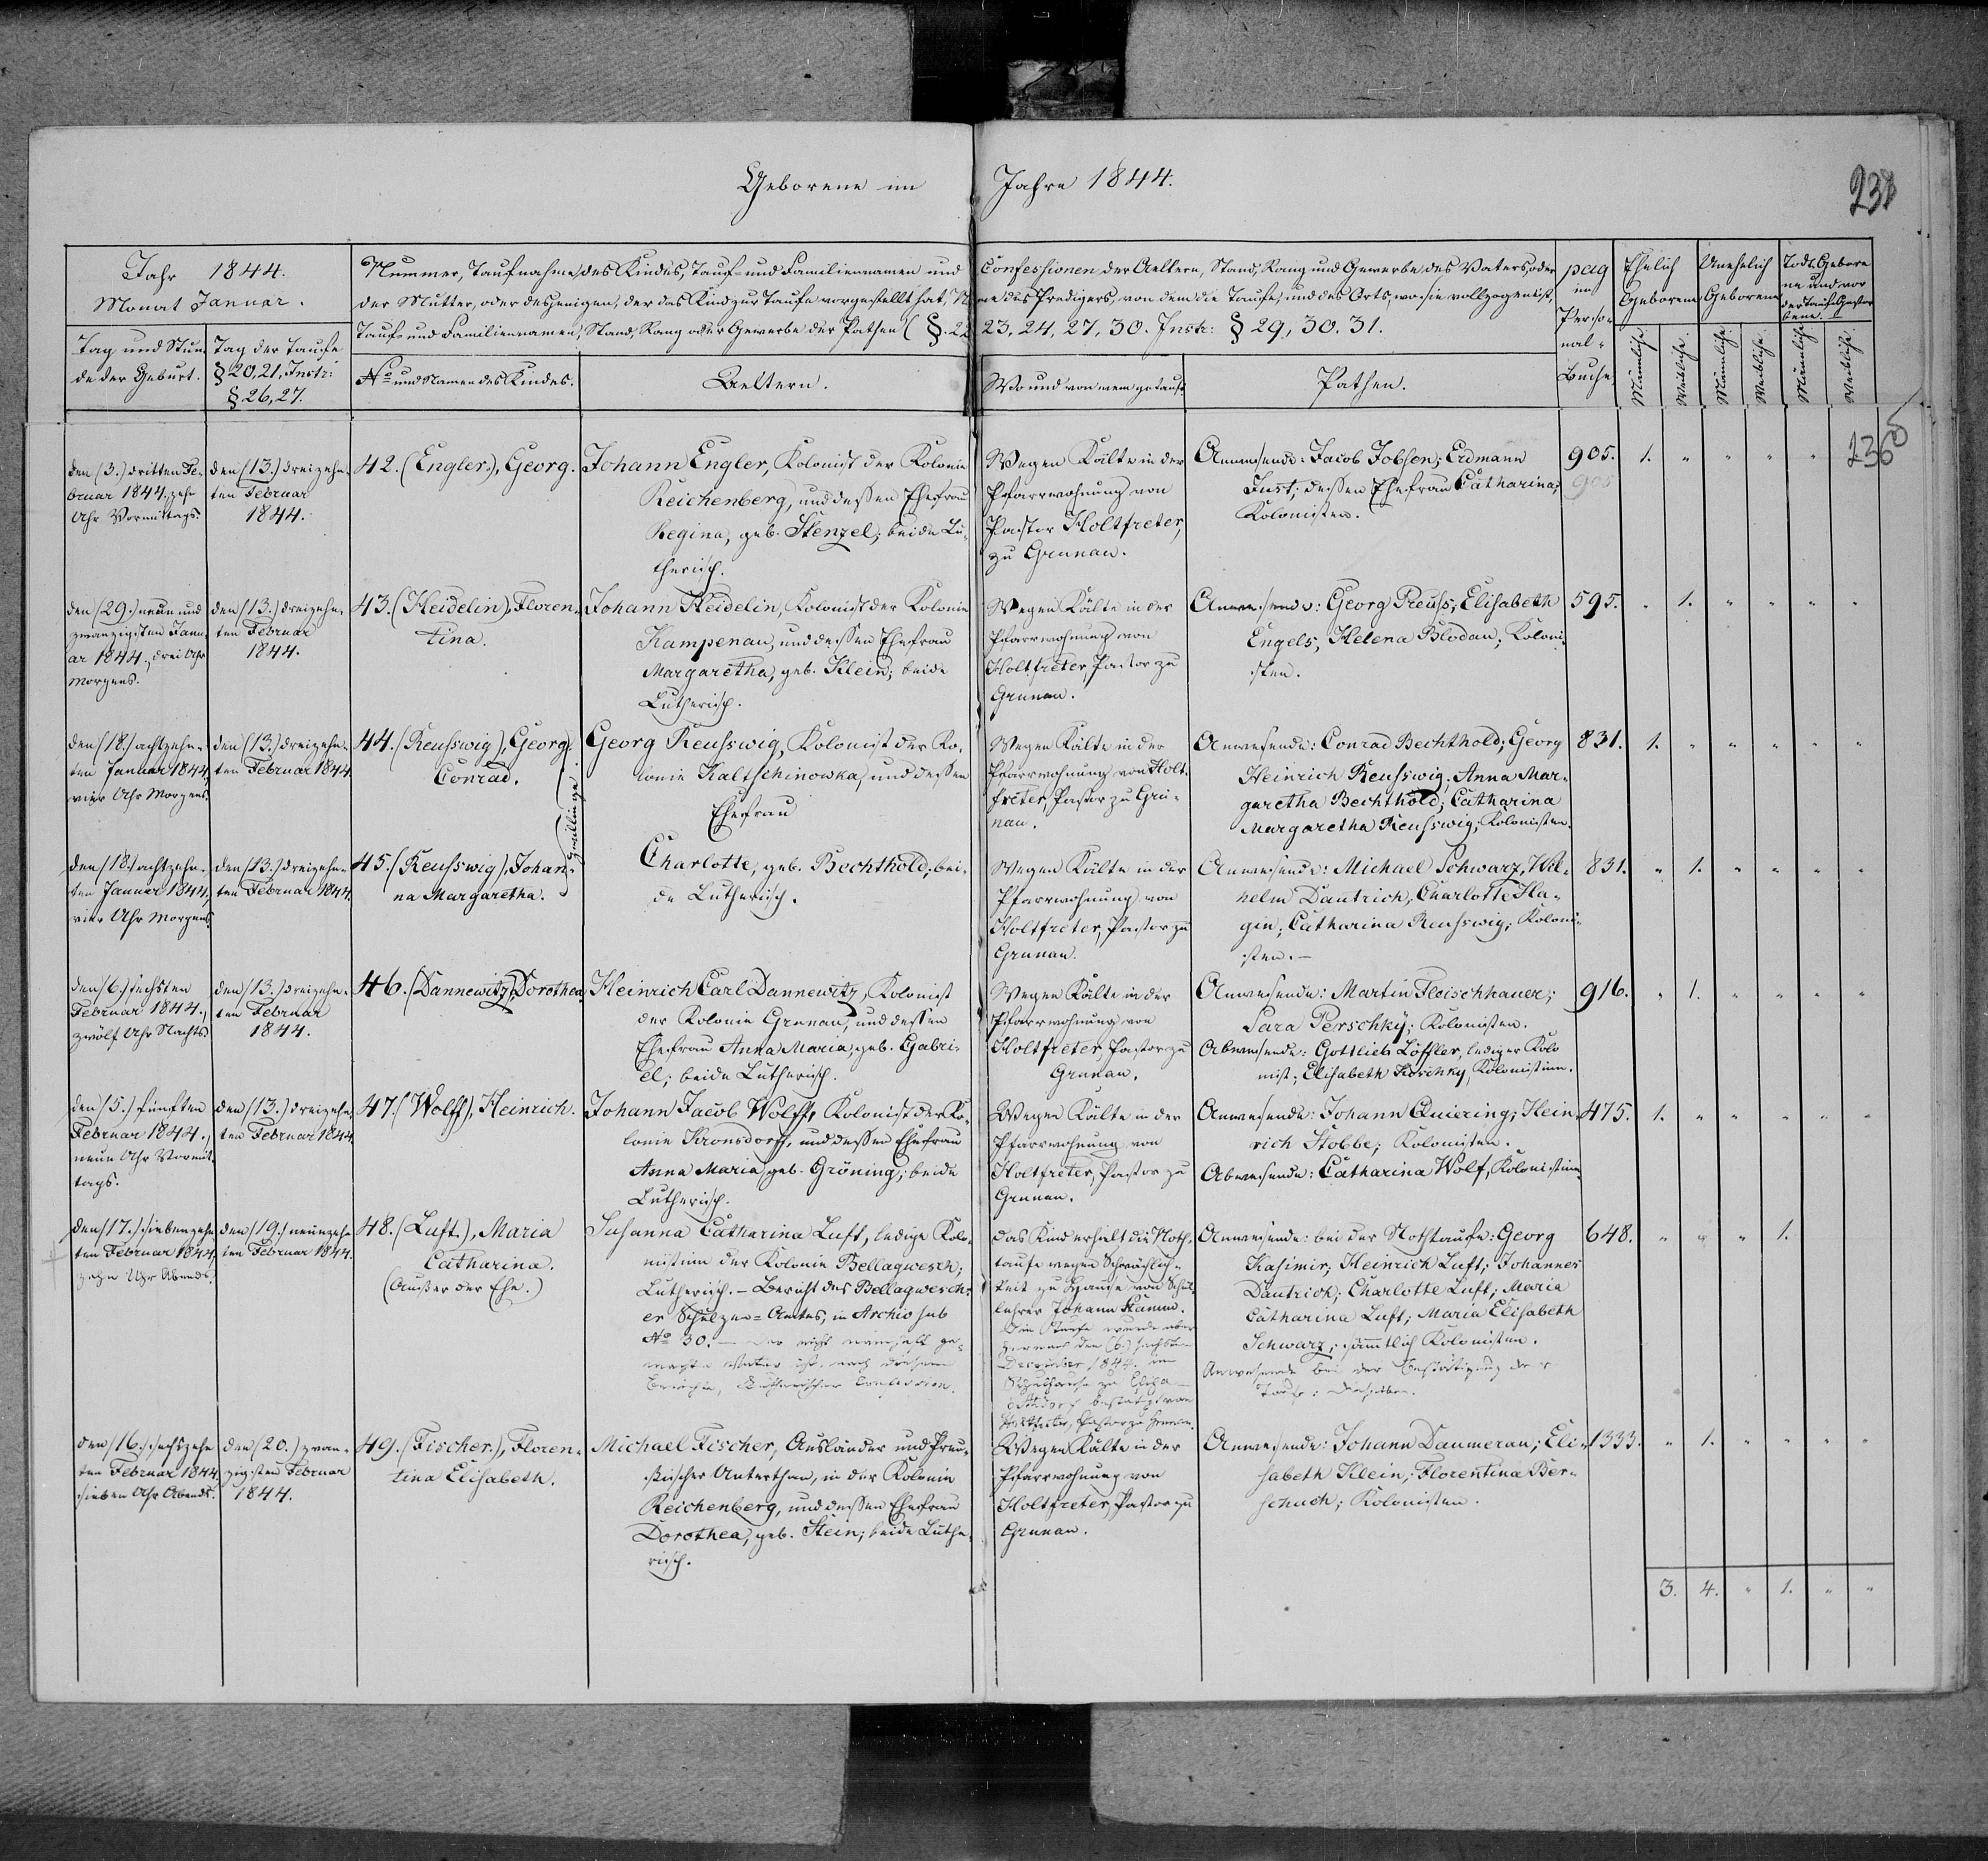 Geborene im Jahre 1844.
238
Jahr 1844.
Monat Januar.
Nummer, Taufnahme des Kindes, Tauf- und Familiennamen und Confessionen der Aeltern, Stand, Rang und Gewerbe des Vaters, oder
der Mutter, oder desjenigen, der das Kind zur Taufe vorgestellt hat, des Predigers, von dem die Taufe, und des Orts, wo sie vollzogen ist,
Tauf- und Familiennamen, Stand, Rang oder Gewerbe der Pathen (§. 22 23, 24, 27, 30. Instr: § 29, 30. 31.
pag
im
Perso-
nal-
Buche
Ehelich
Geborene
Unehelich
Geborene
Todt Gebore
ne und vor
der Taufe Gestor
bene.
Tag und Stun-
de der Geburt.
Tag der Taufe
§ 20, 21. Instr:
§. 26, 27.
No und Namen des Kindes.
Aeltern.
Wo und von wem getauft.
Pathen.
Männliche.
Weibliche.
Männliche.
Weibliche.
Männliche.
Weibliche.
den (3.) dritten Fe-
bruar 1844, zehn
Uhr Vormittags.
den (13.) dreizehn-
ten Februar
1844.
42. (Engler.), Georg.
Johann Engler, Kolonist der Kolonie
Reichenberg, und dessen Ehefrau
Regina, geb. Stenzel; beide Lu-
therisch.
Wegen Kälte in der
Pfarrwohnung von
Pastor Holtfreter,
zu Grunau.
Anwesende: Jacob Jobsen; Erdmann
Just; dessen Ehefrau Catharina;
Kolonisten.
905.
905
1. " " " "
236
den (29.) neun und
zwanzigsten Janu-
ar 1844., drei Uhr
Morgens.
den (13.) dreizehn-
ten Februar
1844.
43. (Heidelin), Floren-
tina.
Johann Heidelin, Kolonist der Kolonie
Kampenau, und dessen Ehefrau
Margaretha, geb. Klein; beide
Lutherisch.
Wegen Kälte in der
Pfarrwohnung von
Holtfreter, Pastor zu
Grunau.
Anwesende: Georg Preuss; Elisabeth
Engels, Helena Blodau; Koloni-
sten.
595.
" 1. " " " "
den (18.) achtzehn-
ten Januar 1844,
vier Uhr Morgens.
den (13.) dreizehn-
ten Februar 1844.
44. (Reusswig), Georg
Conrad.
Zwillinge.
Georg Reusswig, Kolonist der Ko-
lonie Kaltschinowka, und dessen
Ehefrau
Wegen Kälte in der
Pfarrwohnung von Holt-
freter, Pastor zu Gru-
nau.
Anwesende: Conrad Bechthold; Georg
Heinrich Reusswig; Anna Mar-
garetha Bechthold; Catharina
Margaretha Reusswig; Kolonisten.
831.
1. " " " " "
den (18.) achtzehn-
ten Januar 1844,
vier Uhr Morgens.
den (13.) dreizehn-
ten Februar 1844.
45. (Reusswig), Johan-
na Margaretha.
Charlotte, geb. Bechthold; bei-
de Lutherisch.
Wegen Kälte in der
Pfarrwohnung von
Holtfreter, Pastor zu
Grunau.
Anwesende: Michael Schwarz, Wil-
helm Dautrich, Charlotte Ha-
gin; Catharina Reusswig; Koloni-
sten.—
831.
" 1. " " " "
den (6.) sechsten
Februar 1844.,
zwölf Uhr Nachts.
den (13.) dreizehn-
ten Februar
1844.
46. (Dannewitz), Dorothea
Heinrich Carl Dannewitz, Kolonist
der Kolonie Grunau, und dessen
Ehefrau Anna Maria, geb. Gabri-
el; beide Lutherisch.
Wegen Kälte in der
Pfarrwohnung von
Holtfreter, Pastor zu
Grunau.
Anwesende: Martin Fleischhauer;
Sara Perschky; Kolonisten.
Abwesende: Gottlieb Löffler, lediger Kolo
nist; Elisabeth Koschky, Kolonistinn.
916.
" 1. " " " "
den (5.) fünften
Februar 1844.,
neun Uhr Vormit-
tags.
den (13.) dreizehn-
ten Februar 1844.
47. (Wolff), Heinrich.
Johann Jacob Wolff, Kolonist der Ko-
lonie Kronsdorff, und dessen Ehefrau
Anna Maria, geb. Gröning; beide
Lutherisch.
Wegen Kälte in der
Pfarrwohnung von
Holtfreter, Pastor zu
Grunau.
Anwesende: Johann Quiering; Hein-
rich Stobbe; Kolonisten.
Abwesende: Catharina Wolf, Kolonistinn
475.
1. " " " " "
den (17.) siebenzehn
ten Februar 1844,
zehn Uhr Abends.
den (19.) neunzehn
ten Februar 1844.
48. (Luft.), Maria
Catharina.
(Ausser der Ehe.)
Susanna Catharina Luft, ledige Kolo-
nistinn der Kolonie Bellagwesch;
Lutherisch. — Bericht des Bellagwesch-
er Schulzen-Amtes, in Archiv sub
No 30. —
macht Vater ist, nach diesem
Berichte, Lutherischer Confession.
das Kind erhielt die Noth-
taufe wegen Schwächlich-
keit zu Hause von Schul-
lehrer Johann Hamm.
Die Taufe wurde aber
hernach den (6.) sechsten
December 1844. im
Schulhause zu Elisa-
bethdorf bestätigt von
Holtfreter, Pastor zu Grunau.
Anwesende: bei der Nothtaufe: Georg
Kasimir, Heinrich Luft; Johannes
Dautrich; Charlotte Luft; Maria
Catharina Luft; Maria Elisabeth
Schwarz; sämmtlich Kolonisten.
Anwesende bei der Bestätigung der
Taufe: dieselben.
648.
" " " 1.
den (16.) sechszehn
ten Februar 1844.
sieben Uhr Abends.
den (20.) zwan-
zigsten Februar
1844.
49. (Fischer.), Floren-
tina Elisabeth.
Michael Fischer, Ausländer und Preu-
ssischer Unterthan, in der Kolonie
Reichenberg, und dessen Ehefrau
Dorothea, geb. Stein; beide Luthe-
risch.
Wegen Kälte in der
Pfarrwohnung von
Holtfreter, Pastor zu
Grunau.
Anwesende: Johann Daumerau; Eli-
sabeth Klein; Florentina Ber-
schuch; Kolonisten.
1333.
" 1. " " " "
3. 4. " 1. " "